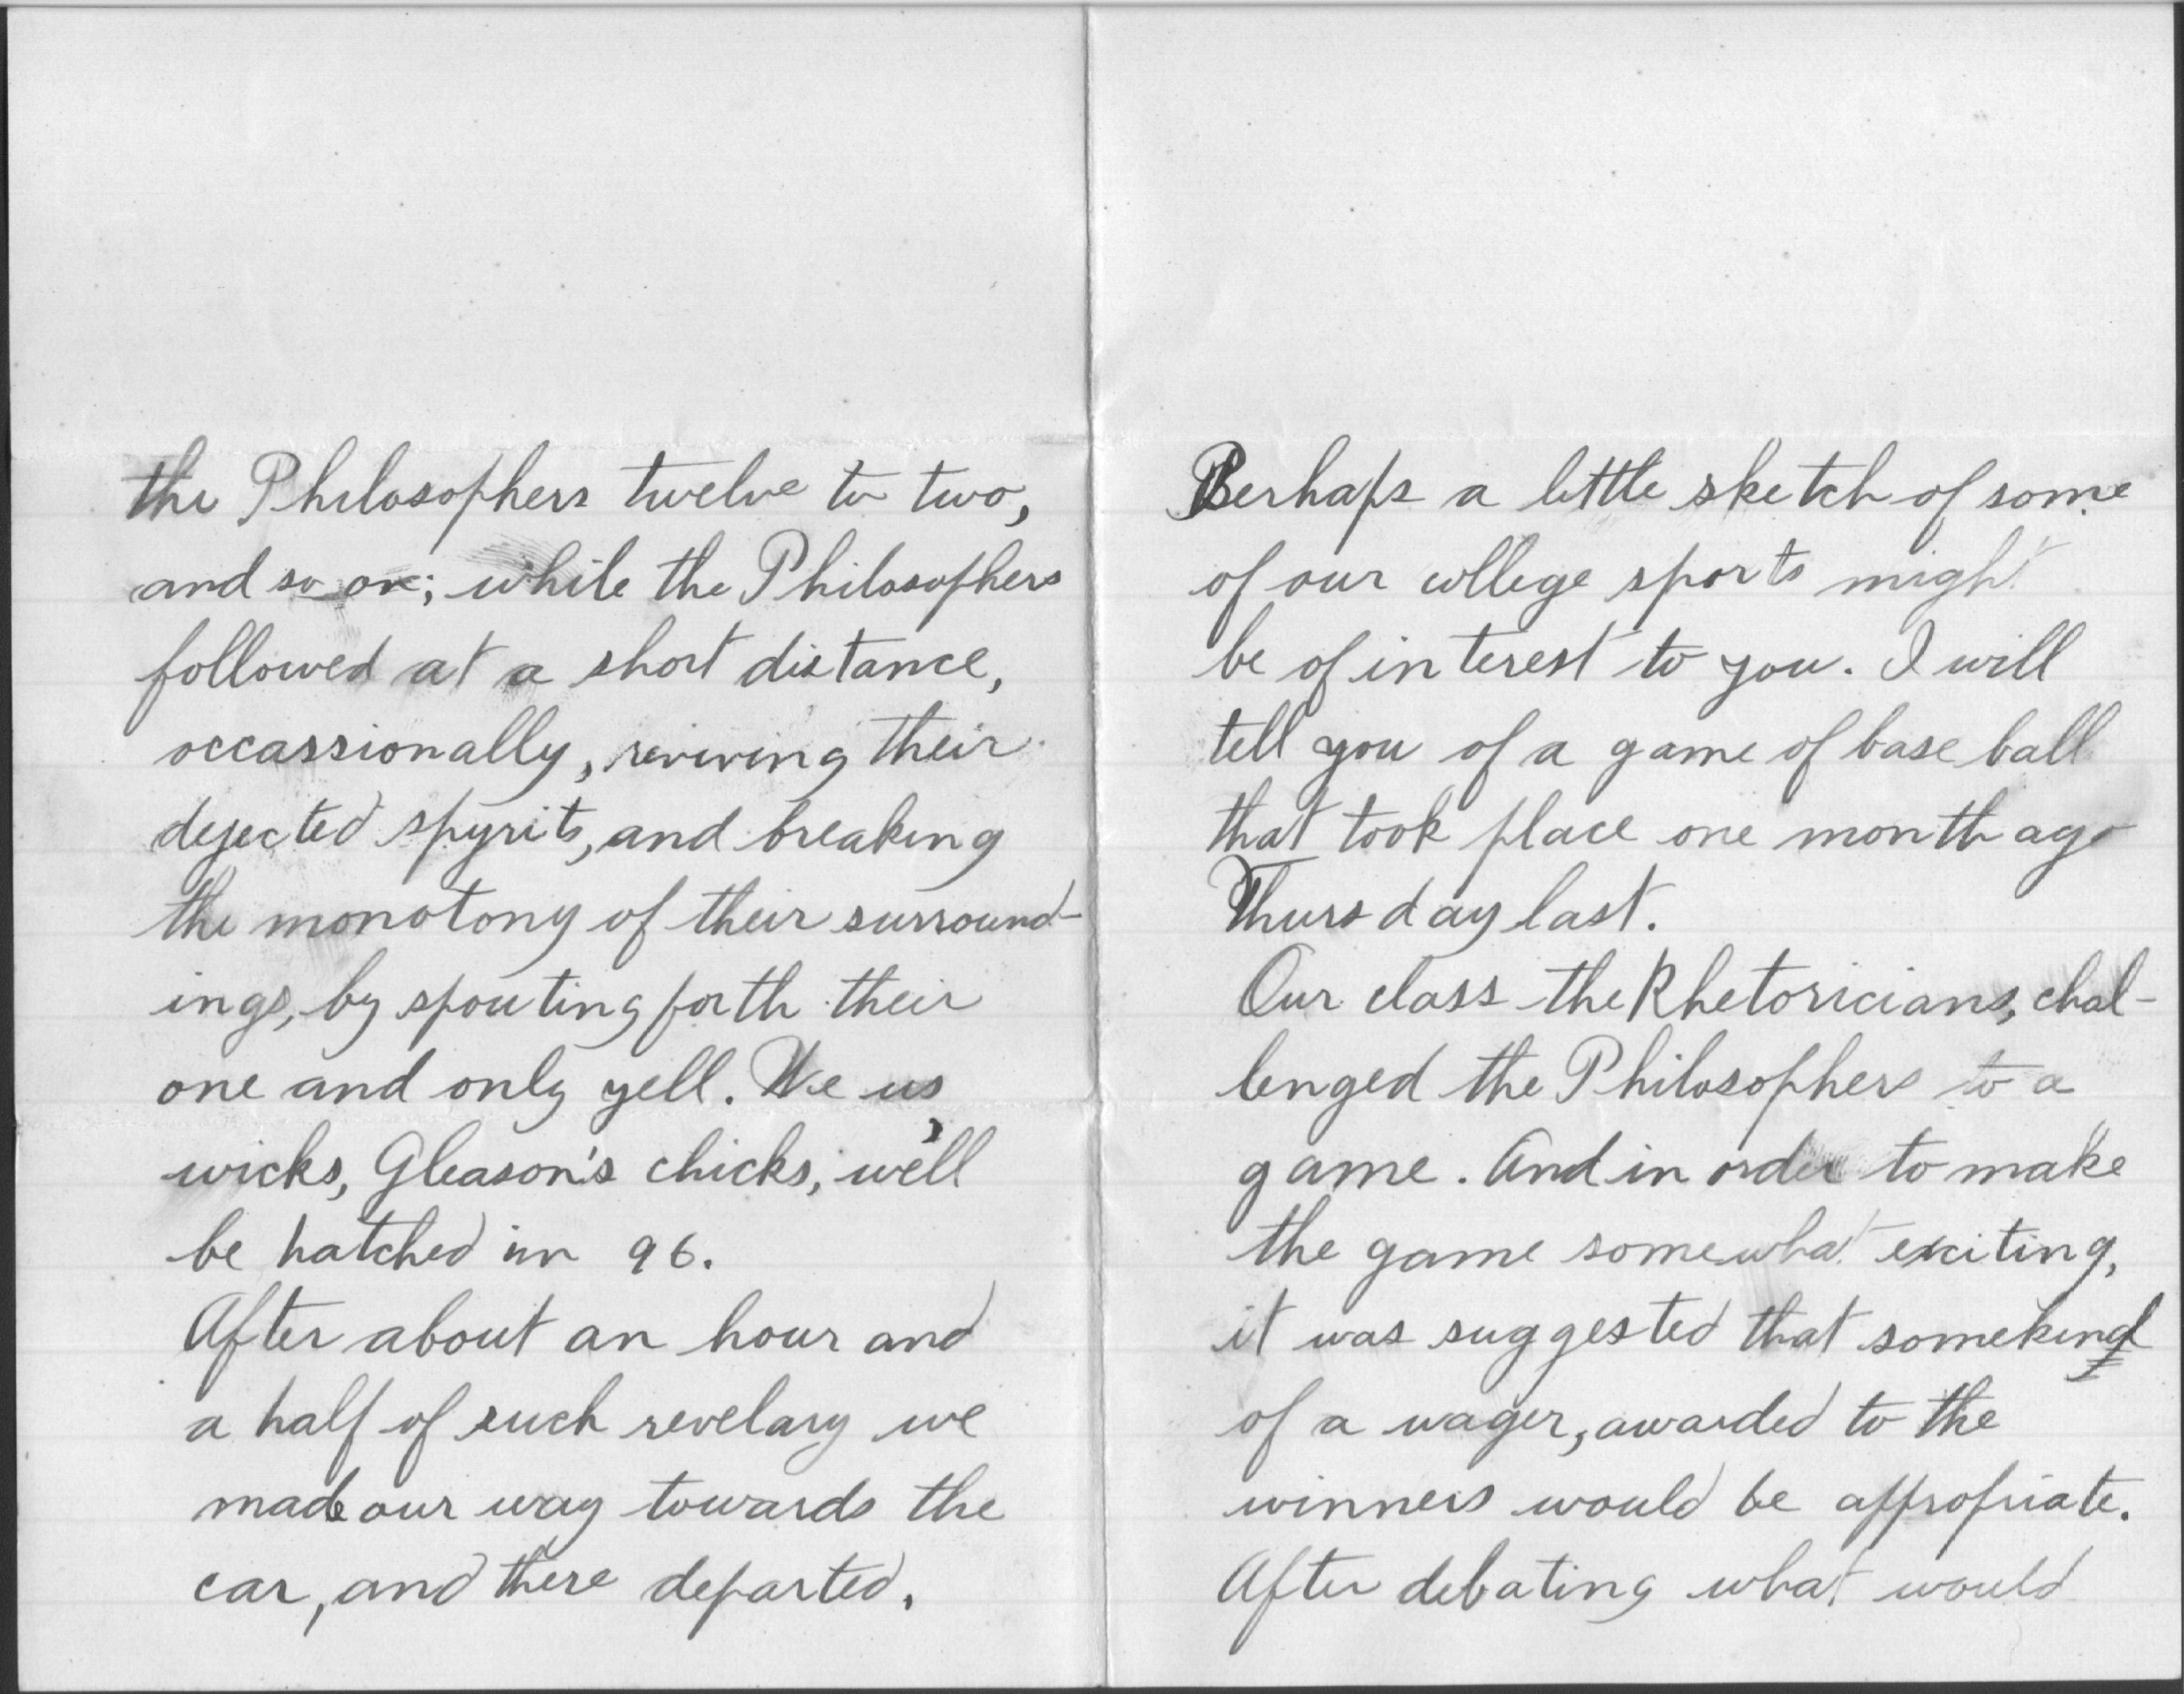 the Philosophers twelve to two,
and so on; while the Philosophers
followed at a short distance,
occassionally, reviving their
dejected spyrits, and breaking
the monotony of their surround-
ings, by spouting forth their
one and only yell. We us,
wicks, Gleason's chicks, we'll
be hatched in 96.
After about an hour and
a half of such revelary we
made our way towards the
car, and there departed.
Perhaps a little sketch of some
of our college sports might
be of interest to you. I will
tell you of a game of base ball
that took place one month ago
Thursday last.
Our class the Rhetoricians, chal-
lenged the Philosophers to a
game. And in order to make
the game somewhat exciting,
it was suggested that some kind
of a wager, awarded to the
winners would be appropriate.
After debating what would